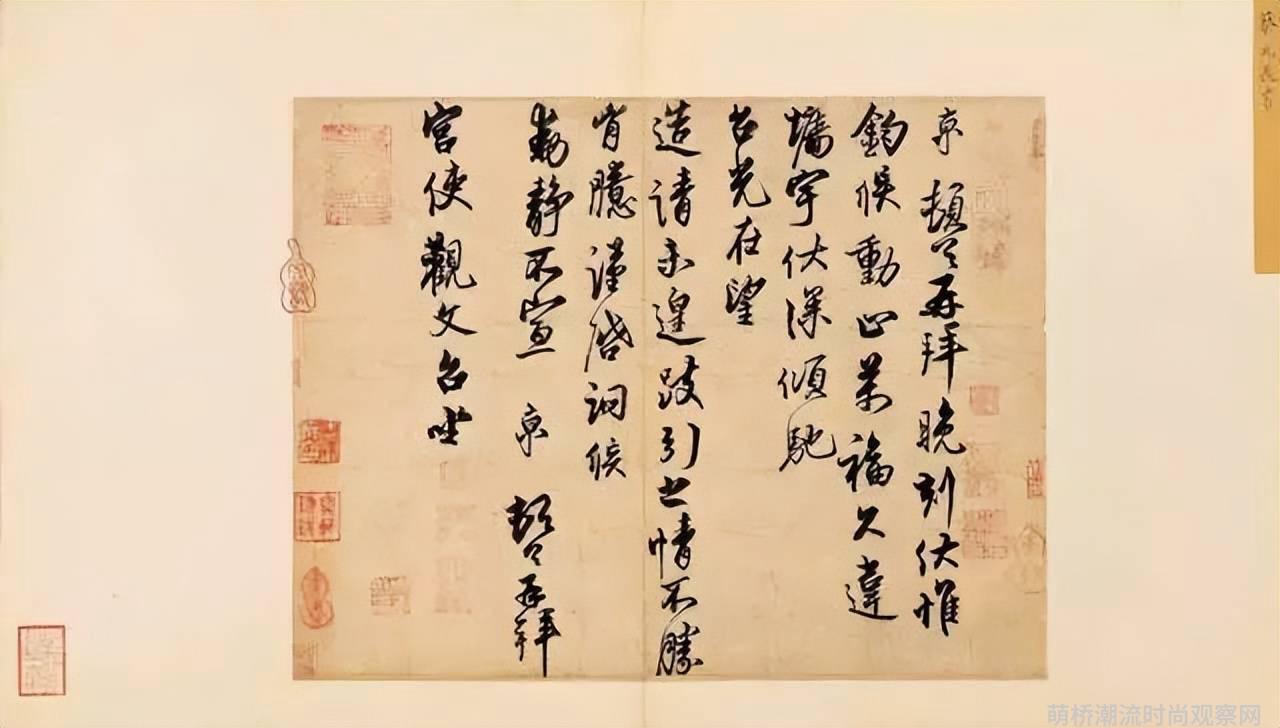 京 頓首再拜 晚刻伏惟
鈞候動止萬福久違
墉宇伏深傾馳
台光在望
造請未遑跂引之情不勝
胷臆謹啓詞候
動靜不宣 京 頓首再拜
宮使觀文台坐
萌桥潮流时尚观察网